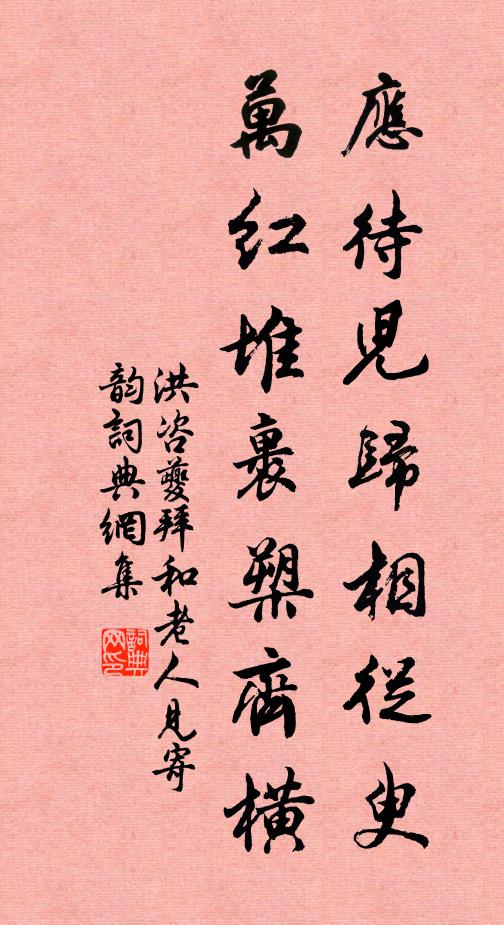 應待兒歸相從臾
萬紅堆裏槊齊橫
洪咨夔拜和老人見寄
韵詞典網集
詞典網印